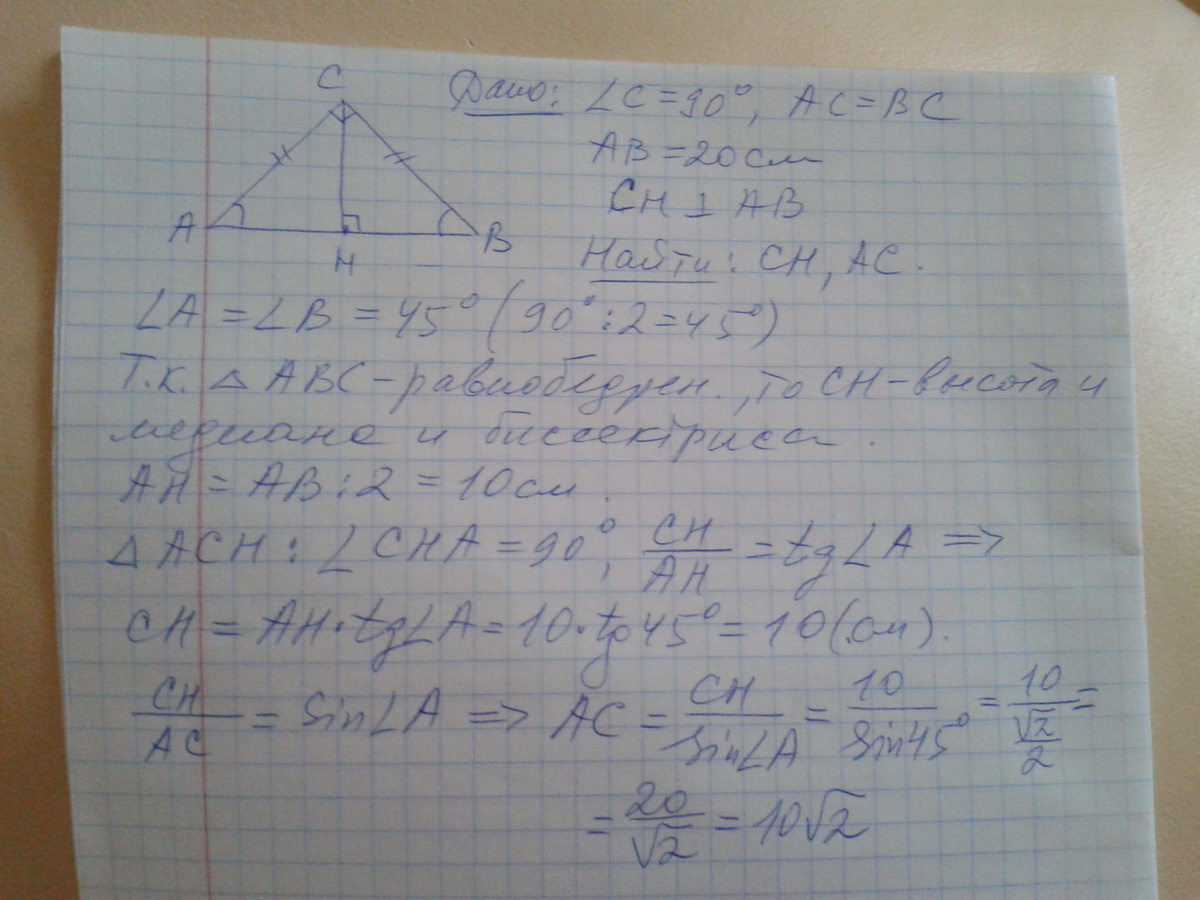 C
A
B
H
Дано: ∠C = 90°, AC = BC
AB = 20 см
CH ⊥ AB
Найти: CH, AC.
∠A = ∠B = 45° (90° : 2 = 45°)
Т.к. △ ABC - равнобедрен., то CH - высота и
медиана и биссектриса.
AH = AB : 2 = 10 см.
△ ACH : ∠ CHA = 90°, CH/AH = tg∠A ⇒
CH = AH · tg∠A = 10 · tg45° = 10 (см).
CH/AC = Sin∠A ⇒ AC = CH/Sin∠A = 10/Sin45° = 10/(√2/2) =
= 20/√2 = 10√2